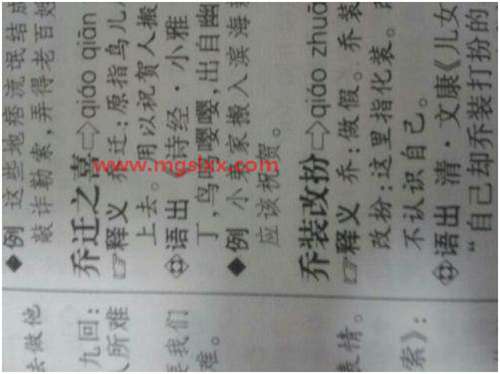 ◆例 这些地痞流氓结成
敲诈勒索，弄得老百姓
乔迁之喜⇨qiáo qiān
☞释义 乔迁：原指鸟儿
上去。用以祝贺人搬
语出 诗经·小雅
丁，鸟鸣嘤嘤，出自幽
◆例 小 家搬入滨海
应该祝贺。
乔装改扮⇨qiáo zhuā
☞释义 乔：做假。乔装
改扮：这里指化装。
不认识自己。
语出 清·文康《儿女
“自己却乔装打扮的
去做他
九回：
人所难
要我们
难。
表情。
索》：
www.mgslxx.com